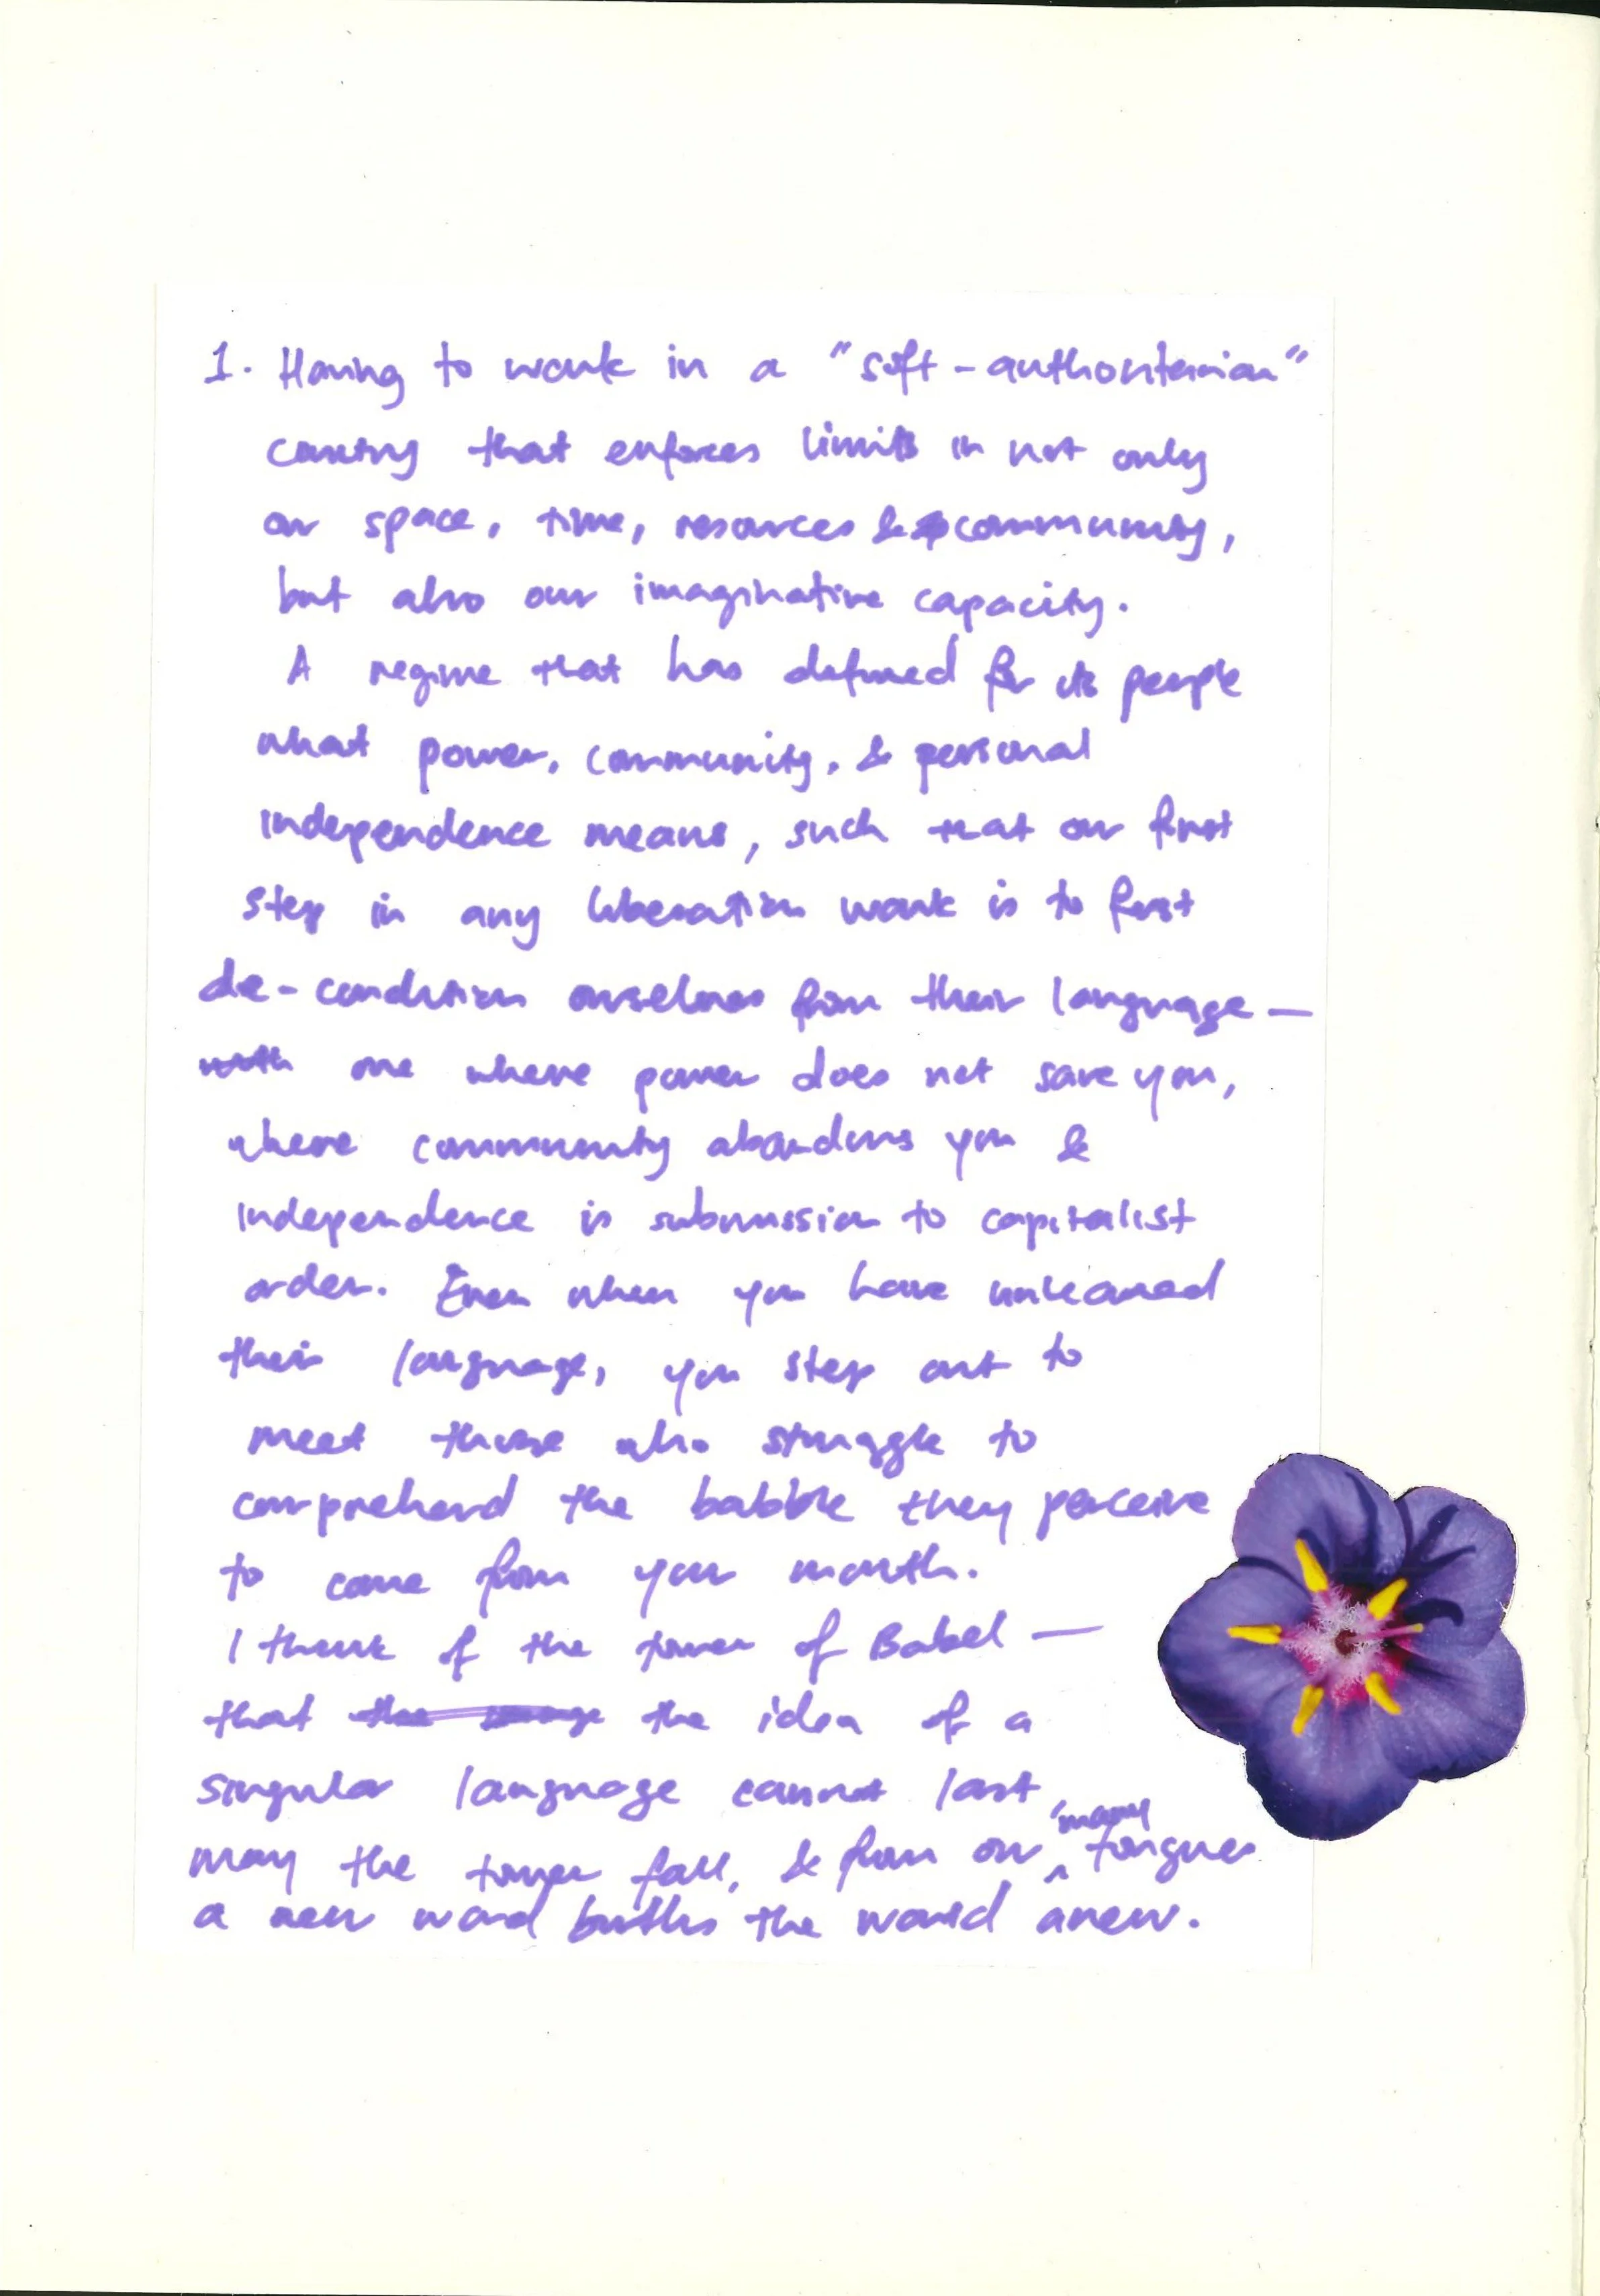 1. Having to work in a "soft-authoritarian"
country that enforces limits in not only
our space, time, resources & community,
but also our imaginative capacity.
A regime that has defined for its people
what power, community, & personal
independence means, such that our first
step in any liberation work is to first
de-condition ourselves from their language —
with one where power does not save you,
where community abandons you &
independence is submission to capitalist
order. Even when you have unlearned
their language, you step out to
meet those who struggle to
comprehend the babble they perceive
to come from your mouth.
I think of the tower of Babel —
that the the idea of a
singular language cannot last,
may the tower fall, & from our many tongues
a new word births the world anew.